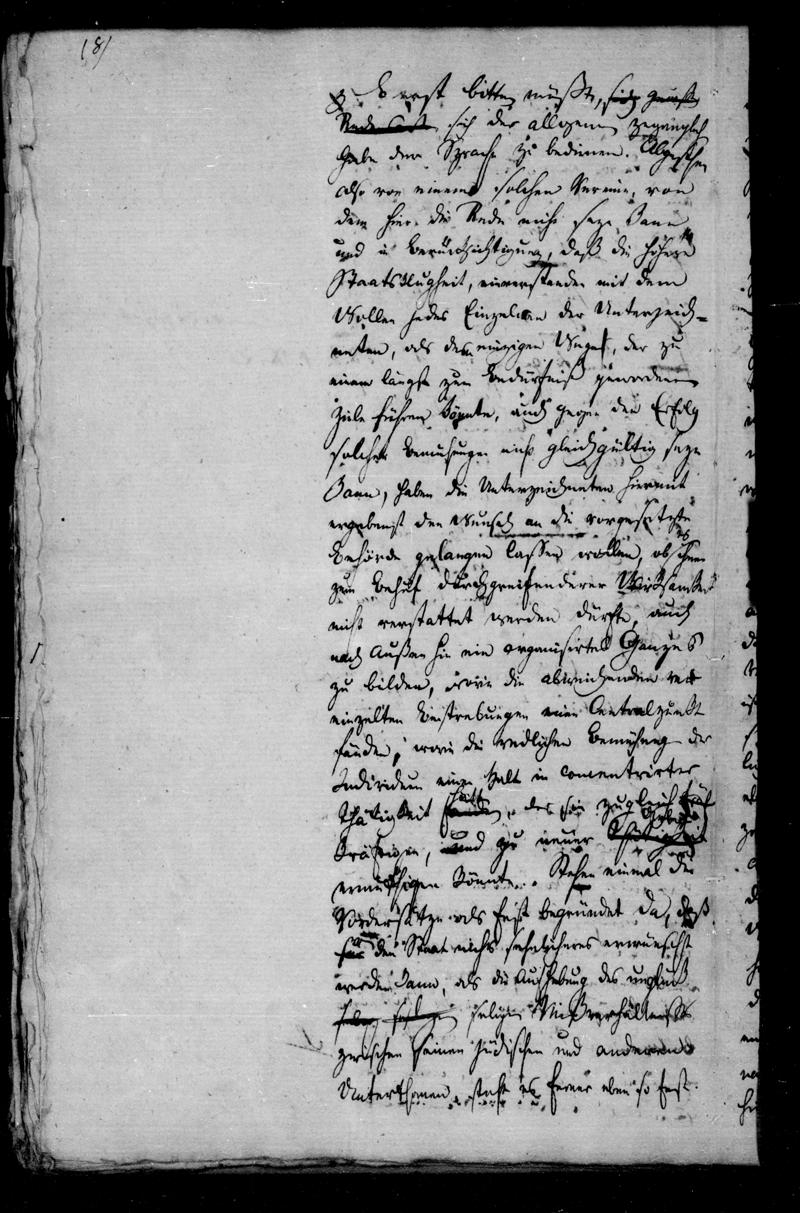 (8)
Erst bitten müßte, sich
Rede sich der allgemein
Gabe der Sprache zu bedienen. Abgesehen
also von einem solchen Verein, von
dem hier die Rede nicht seyn kann
und in Berücksichtigung, daß die höhere
Staatsklugheit, einverstanden mit dem
Wollen jedes Einzelnen der Unterzeich-
neten, als dem einzigen Wege, der zu
einem längst zum Bedürfniß gewordenen
Ziele führen könnte, auch gegen den Erfolg
solcher Bemühungen nicht gleichgültig seyn
kann, haben die Unterzeichneten hiermit
ergebenst den Wunsch an die vorgesetzte
Behörde gelangen lassen wollen, ob es ihnen
zum Behuf durchgreifenderer Wirksamkeit
nicht verstattet werden dürfte, auch
nach Außen hin ein organisirtes Ganzes
zu bilden, worin die abweichenden
einzelten Bestrebungen einen Centralpunkt
fänden, worin die redlichen Bemühungen der
Individuen einen Halt in concentrirter
Thätigkeit hätten, der sie zugleich für
kräftigen, und zu neuer
ermuthigen könnte. Stehen einmal die
Vordersätze als fest begründet da, daß
für den Staat nichts sehnlicheres erwünscht
werden kann, als die Aufhebung des unglück
seligen Mißverhältnisses
zwischen seinen jüdischen und anderen
Unterthanen, steht es ferner eben so fest